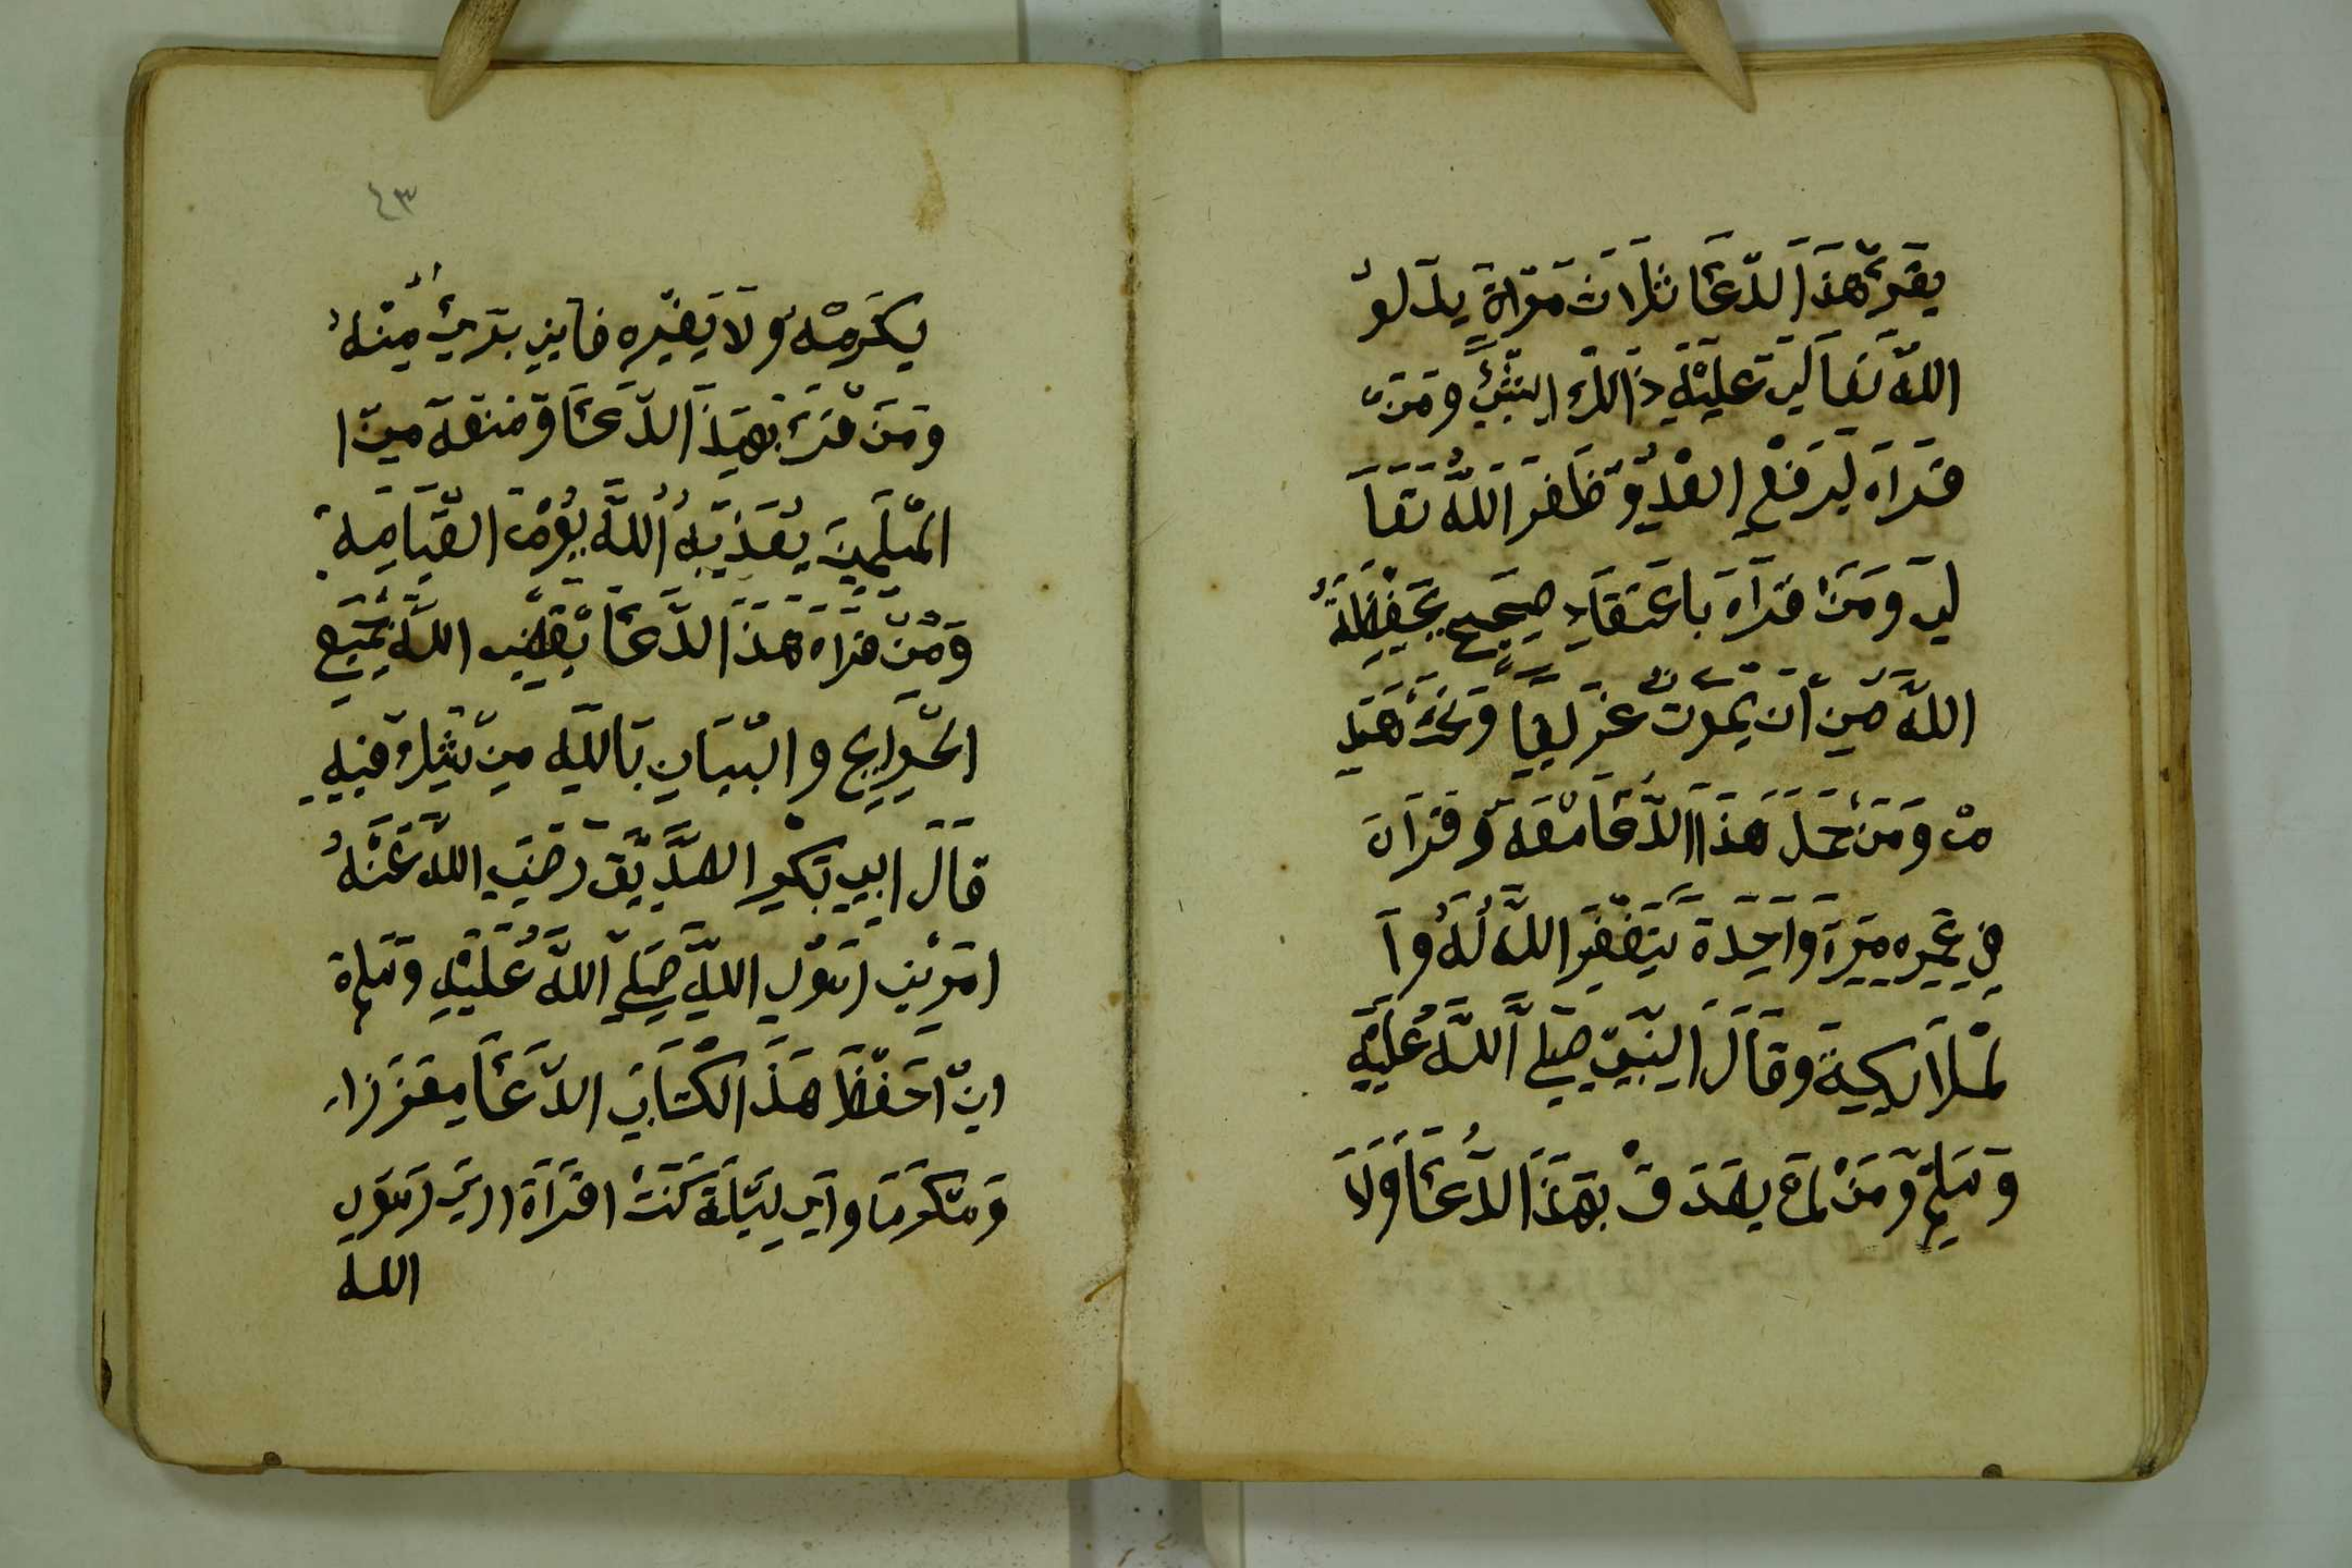 يقرئ هذا الدعا ثلاث مراة يدلو
الله تعالي عليه ذالك الشئ ومن
قراه ليرفع العدو ظفر الله تعا
لي ومن قراه باعتقاد صحيح يحفظه
الله من ان يموت غريقا
م ومن حمل هذا الدعا معه وقراه
في عمره مرة واحدة يتغفر الله له وا
لملايكة وقال النبي صلي الله عليه
وسلم ومن لم يصدق بهذا الدعا ولا
٤٣
يكرمه ولا يغيره فايني بريئ منه
ومن قرئ بهذا الدعا ومنعه من ا
المسلمين يعذبه الله يوم القيامة
ومن قراه هذا الدعا يقضي الله جميع
الحوايج والبيان بالله من يشك فيه
قال ابي بكر الصديق رضي الله عنه
امرني رسول الله صلي الله عليه وسلم
ان احفظ هذا الكتاب الدعا معززا
ومكرما واي ليلة كنت اقراه اري رسول
الله